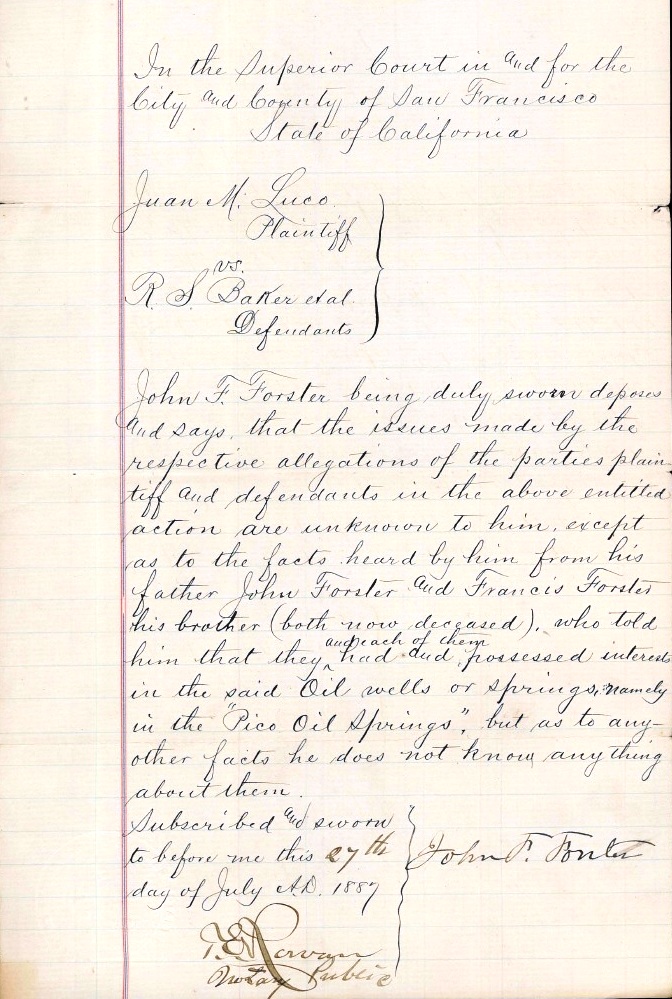 In the Superior Court in and for the
City and County of San Francisco
State of California
Juan M. Luco.
Plaintiff
vs.
R. S. Baker et al.
Defendants
John F. Forster being duly sworn deposes
and says, that the issues made by the
respective allegations of the parties plain-
tiff and defendants in the above entitled
action are unknown to him, except
as to the facts heard by him from his
father John Forster and Francis Forster
his brother (both now deceased), who told
and each of them
him that they ‸ had and possessed interests
in the said Oil wells or springs, namely
in the "Pico Oil Springs", but as to any-
other facts he does not know anything
about them.
Subscribed and sworn
to before me this 27th
day of July A.D. 1887
John F. Forster
T. E. Rowan
Notary Public